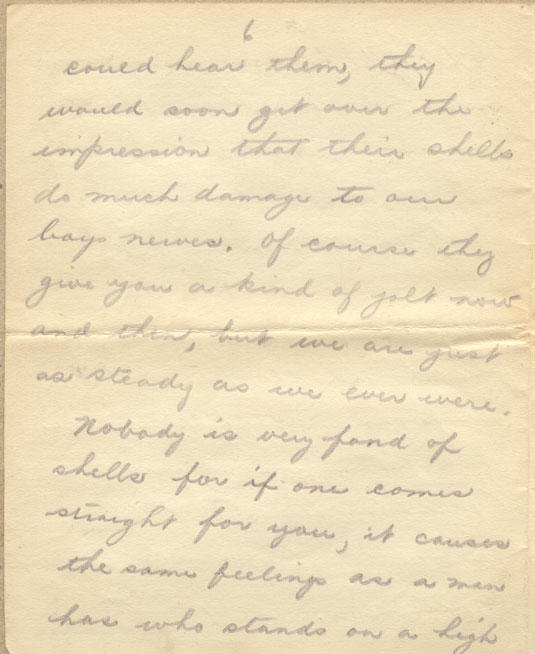 6
could hear them, they
would soon get over the
impression that their shells
do much damage to our
boys nerves. Of course they
give you a kind of jolt now
and then, but we are just
as steady as we ever were.
Nobody is very fond of
shells for if one comes
straight for you, it causes
the same feelings as a man
has who stands on a high